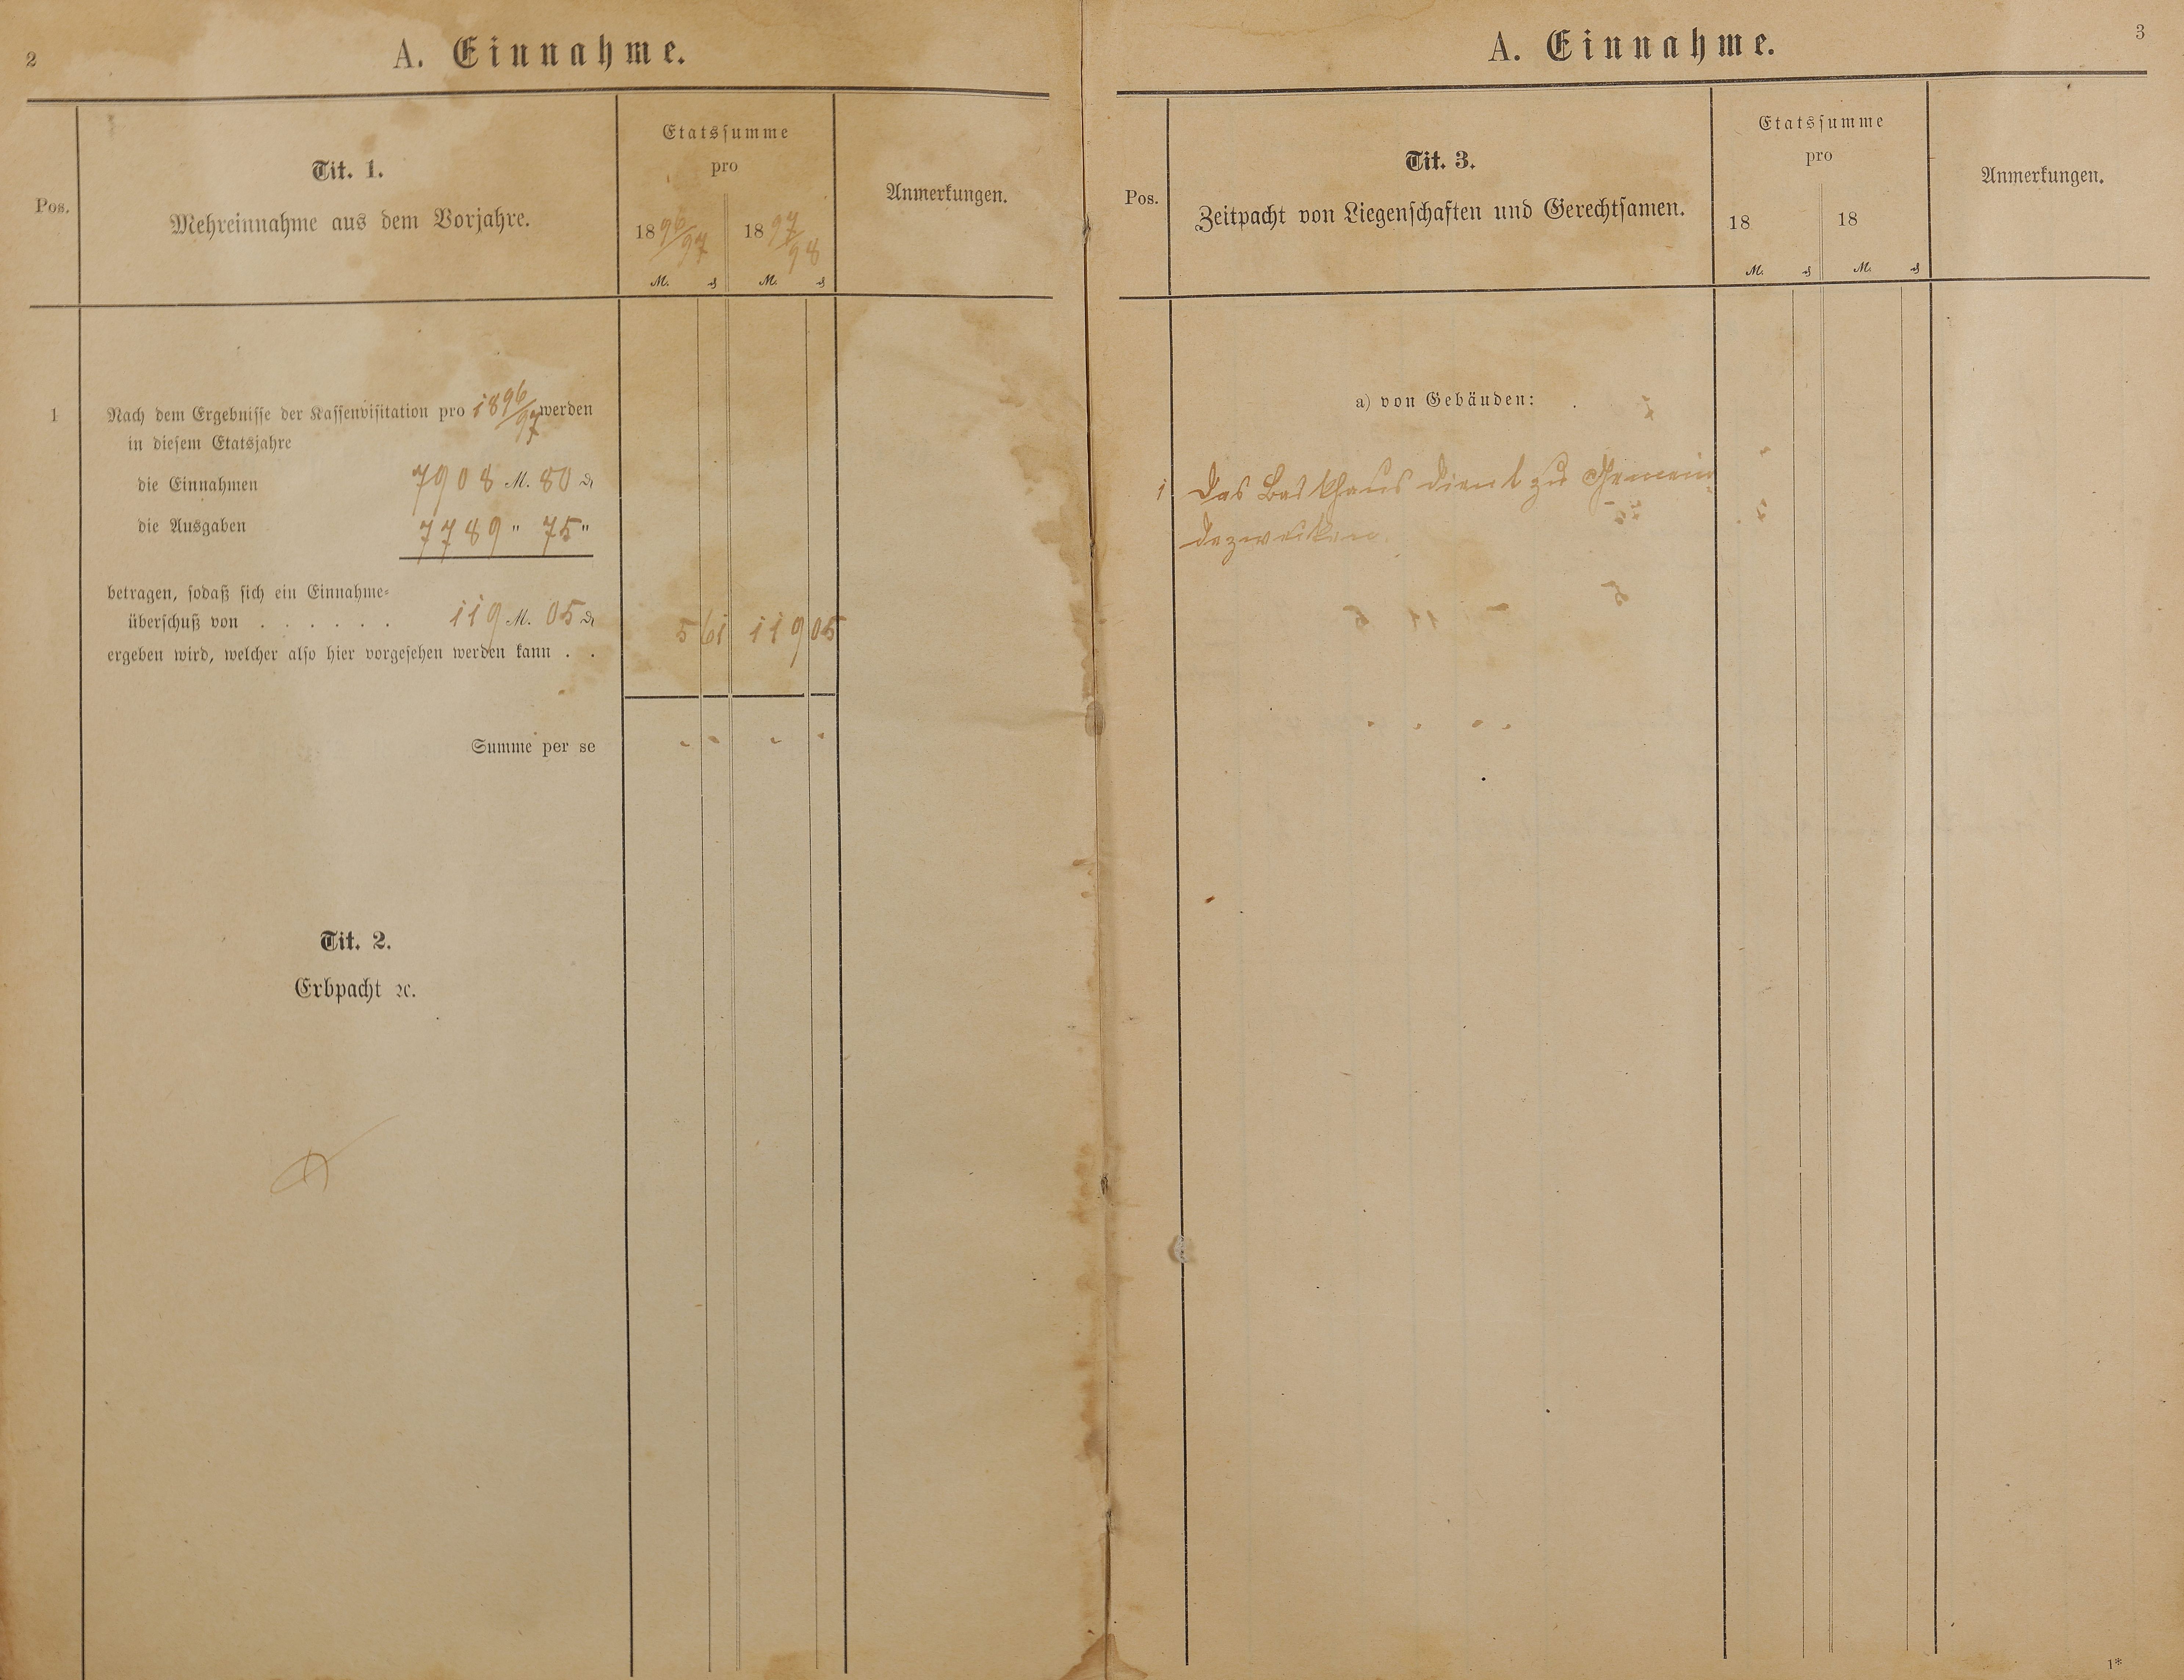 2
A. Einnahme.
Pos.
Tit. 1.
Mehreinnahme aus dem Vorjahre.
Etatssumme
pro
1896/97 1897/98
M. ₰ M. ₰
Anmerkungen.
1 Nach dem Ergebnisse der Kassenvisitation pro 1896/97 werden
in diesem Etatsjahre
die Einnahmen 7908 M. 80 ₰
die Ausgaben 7789 " 75 "
betragen, sodaß sich ein Einnahme-
überschuß von . . . . . . 119 M. 05 ₰ 5 61 119 05
ergeben wird, welcher also hier vorgesehen werden kann . .
Summe per se
Tit. 2.
Erbpacht ꝛc.
3
A. Einnahme.
Pos.
Tit. 3.
Zeitpacht von Liegenschaften und Gerechtsamen.
Etatssumme
pro
18 18
M. ₰ M. ₰
Anmerkungen.
a) von Gebäuden:
1 Das Backhaus dient zu Gemein-
dezwecken.
1*